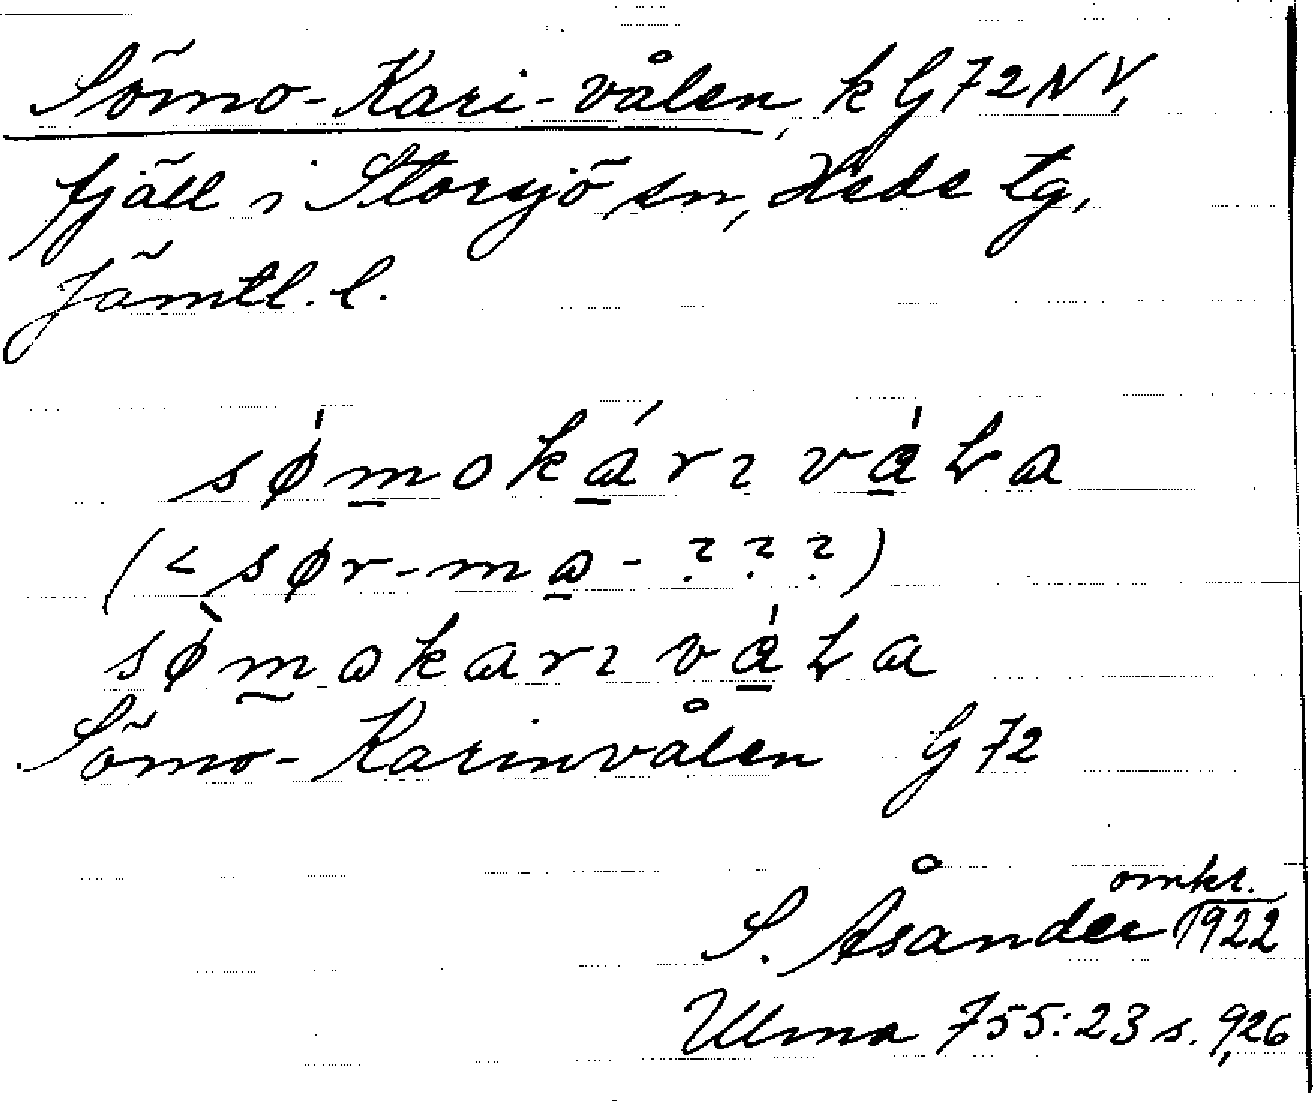 Sömo-Kari-vålen, k G72NV,
fjäll i Storsjö sn, Hede tg,
Jämtl. l.
sø̍m̲oká̲rı va̲̍ƚa
(< sør-ma̲- ???)
sø̀m̰akarı va̲̍ƚa
Sömo-Karinvålen G72
omkr.
S. Åsander 1922
Ulma 755:23 s. 9,26